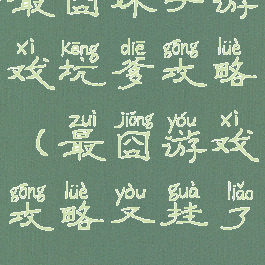 最囧坏学游
xì kēng diē gōng lüè
戏坑爹攻略
zuì jiǒng yóu xì
（最囧游戏
gōng lüè yòu guà liǎo
攻略又挂了